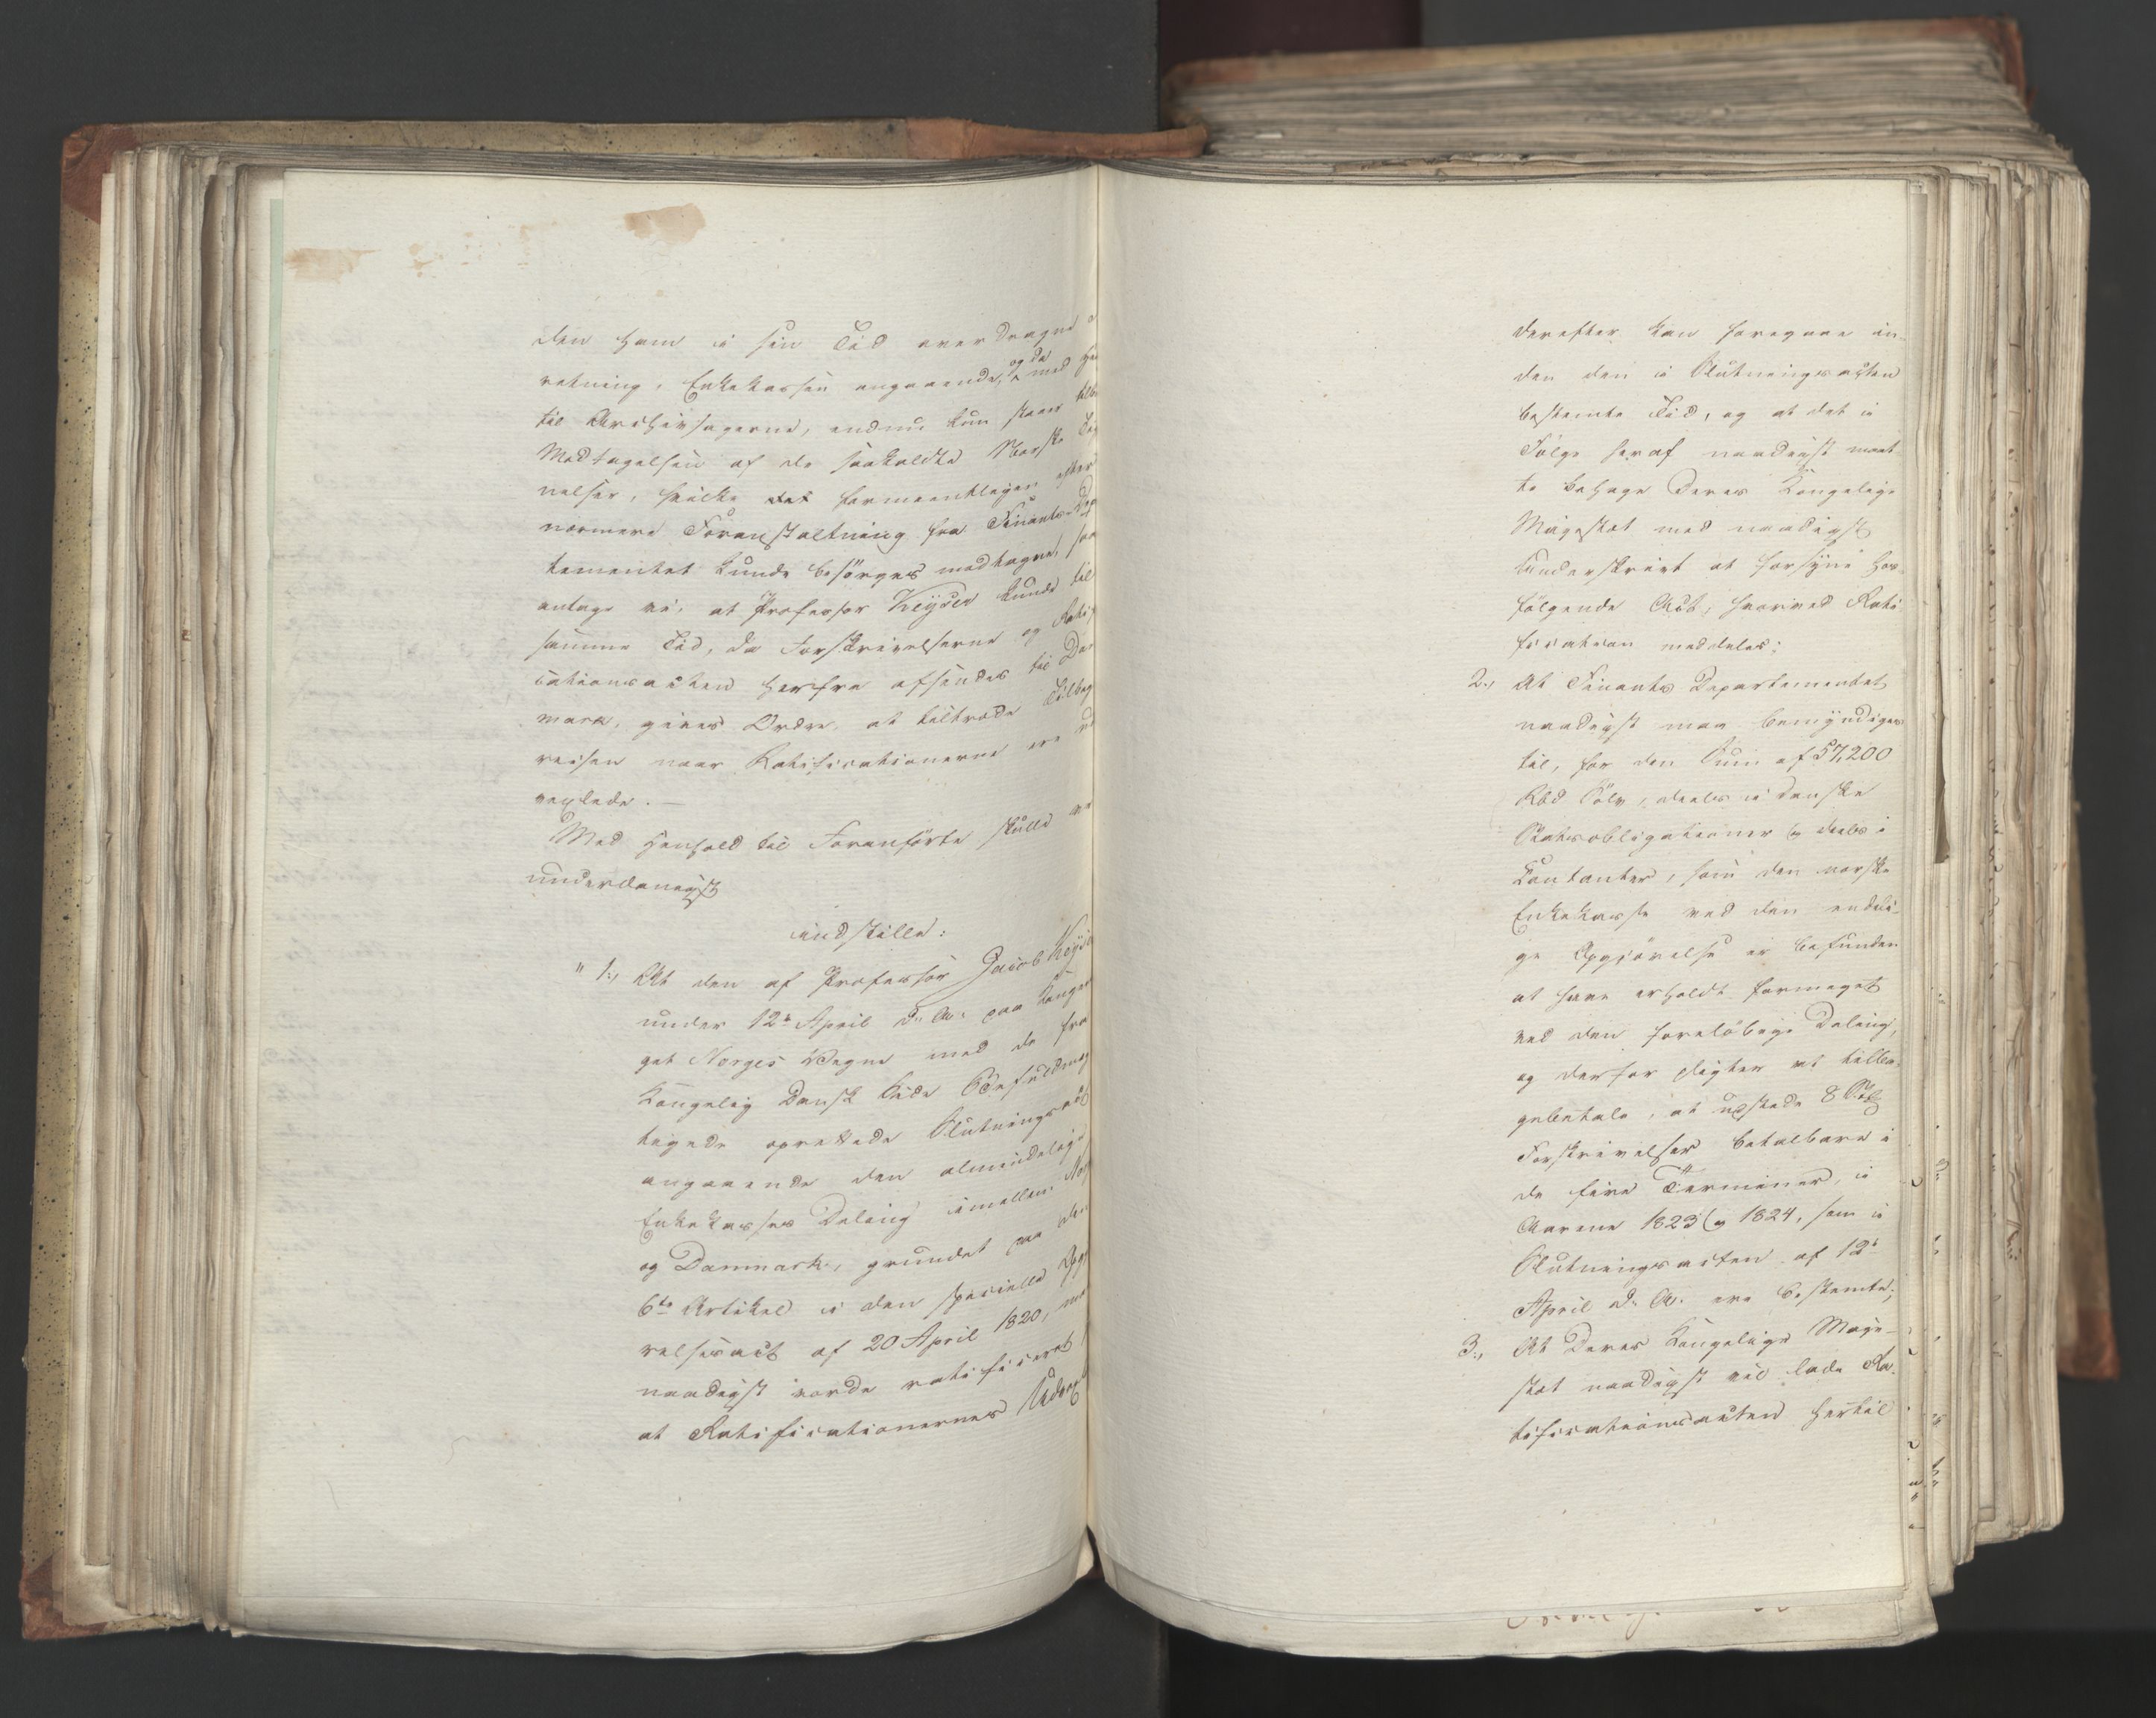 den ham i sin Tid overdragne
retning, Enkekassen angaaende, og da med
til Archivsagerne, endnu kun staaer
Modtagelsen af de saakaldte Norske
nelser, hvilke det formeentligen efter
nærmere Foranstaltning fra Finants-Dep
tementet kunde besørges modtagne, saa
antage vi, at Professor Keyser kunde til
samme Tid, da Forskrivelserne og Ratif
icationsacten herfra afsendes til Dan
mark, gives Ordre at tiltræde Tilbage
reisen naar Ratificationerne ere ud
vexlede. —
Med Henhold til Foranførte skulle vi
underdanigst
indstille:
" 1., At den af Professor Jacob Keyser
under 12te April d: A: paa Konge
get Norges Vegne med de fra
Kongelig Dansk Side Befuldmæg
tigede oprettede Slutningsact
angaaende den almindelige
Enkekasses Deling imellem Nor
og Danmark, grundet paa den
6te Artikel i den specielle Opgj
relsesact af 20 April 1820, maa
naadigst vorde ratificeret,
at Ratificationernes Udvex
derefter kan foregaae in-
den den i Slutningsacten
bestemte Tid, og at det i
Følge heraf naadigst maat
te behage Deres Kongelige
Majestæt med naadigst
Underskrivt at forsyne hos-
følgende Act, hvorved Rati
fication meddeles;
2., At Finants Departementet
naadigst maa bemyndiges
til, for den Sum af 57,200
Rbd Sølv, deels i danske
Statsobligationer og deels i
Contanter, som den norske
Enkekasse ved den endeli-
ge Opgjørelse er befunden
at have erholdt formeget
ved den foreløbige Deling,
og derfor pligter at tilba-
gebetale, at udstede 8 Stk
Forskrivelser betalbare i
de fire Terminer, i
Aarene 1823 og 1824, som i
Slutningsacten af 12te
April d: A: ere bestemte;
3., At Deres Kongelige Maje-
stæt naadigst vil lade Ra-
tificationsacten hertil